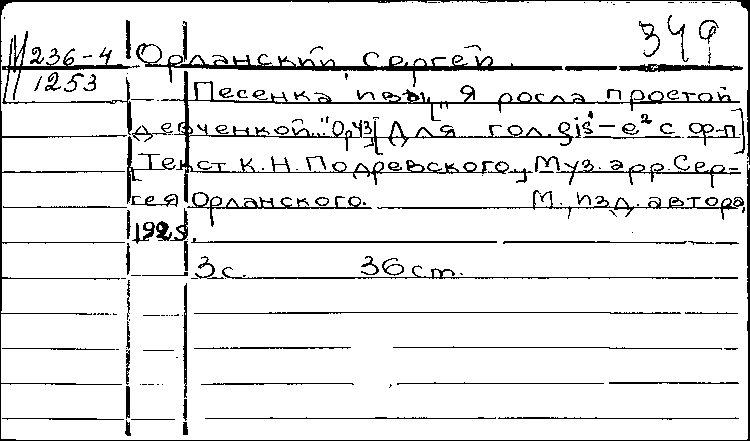 349
М 236-4 Орланский, Сергей.
1253
Песенка „Я росла простой
девченкой..." [Для гол. gis¹–e² с ф-п]
[Текст К.Н. Подревского, Муз. арр. Сер=
гея Орланского. М., изд. автора,
1925.
3 с. 36 cm.